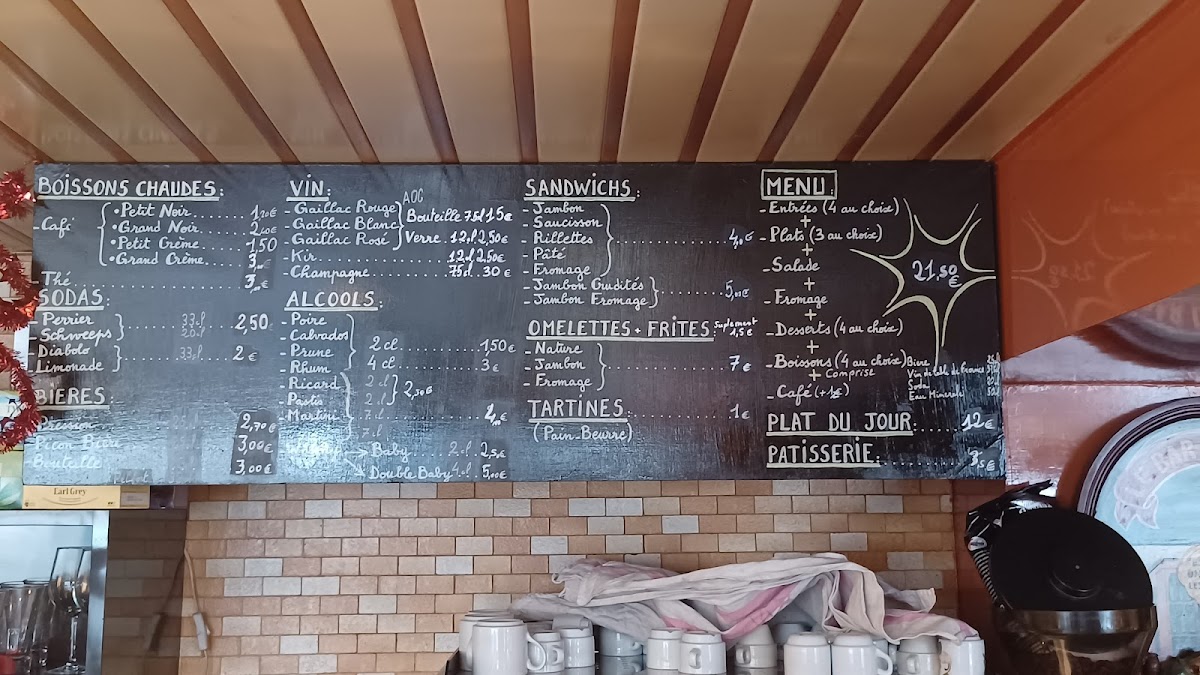 BOISSONS CHAUDES:
- Café
• Petit Noir 1,20€
• Grand Noir 2,40€
• Petit Crème 1,50
• Grand Crème
- Thé
SODAS
- Perrier 33cl 2,50€
- Schweeps 20cl
- Diabolo 33cl 2€
- Limonade
BIERES
Pression 2,70€
Picon Bière 3,00€
Bouteille 3,00€
VIN:
AOC
- Gaillac Rouge
- Gaillac Blanc
- Gaillac Rosé
Bouteille 75cl 15€
Verre 12cl 2,50€
- Kir 12cl 2,50€
- Champagne 75cl 30€
ALCOOLS:
- Poire
- Calvados
- Prune
- Rhum
2 cl 1,50€
4 cl 3€
- Ricard 2cl
- Pastis 2cl
2,50€
- Martini 7cl 4,00€
7cl
Baby 2cl 2,50€
Double Baby 4cl 5,00€
SANDWICHS:
- Jambon
- Saucisson
- Rillettes
- Pâté
- Fromage
4,00€
- Jambon Crudités
- Jambon Fromage
5,00€
OMELETTES + FRITES Suplement 1,5€
- Nature
- Jambon
- Fromage
7€
TARTINES: 1€
(Pain-Beurre)
MENU:
- Entrées (4 au choix)
+
- Plats (3 au choix)
+
- Salade
+
- Fromage
+
- Desserts (4 au choix)
+
- Boissons (4 au choix)
+ Comprise
- Café (+1€)
21,50€
Bière
Vin de table de France
Soda
Eau Minerale
PLAT DU JOUR: 12€
PATISSERIE: 3,5€
Earl Grey